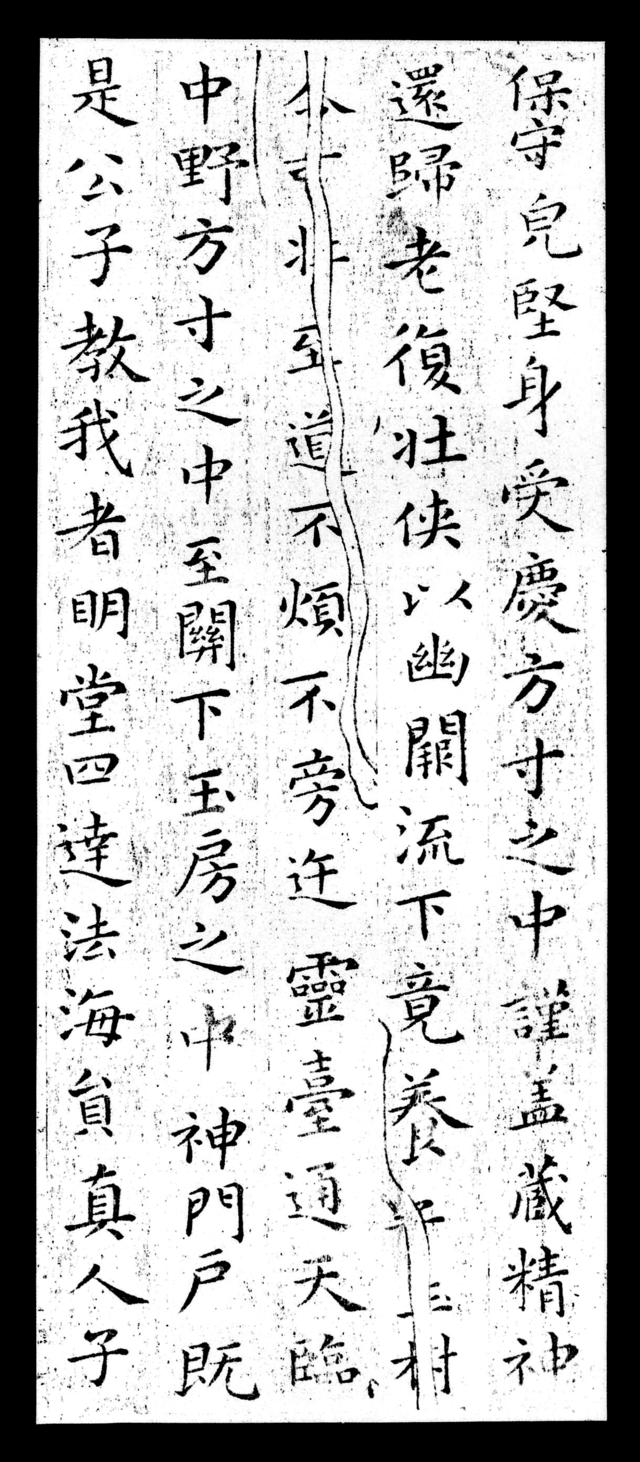 保守皃堅身受慶方寸之中謹盖蔵精神
還歸老復壯侠以幽闕流下竟養子玉樹
令可壯至道不煩不旁迕靈臺通天臨
中野方寸之中至關下玉房之中神門戶既
是公子教我者眀堂四達法海貟真人子